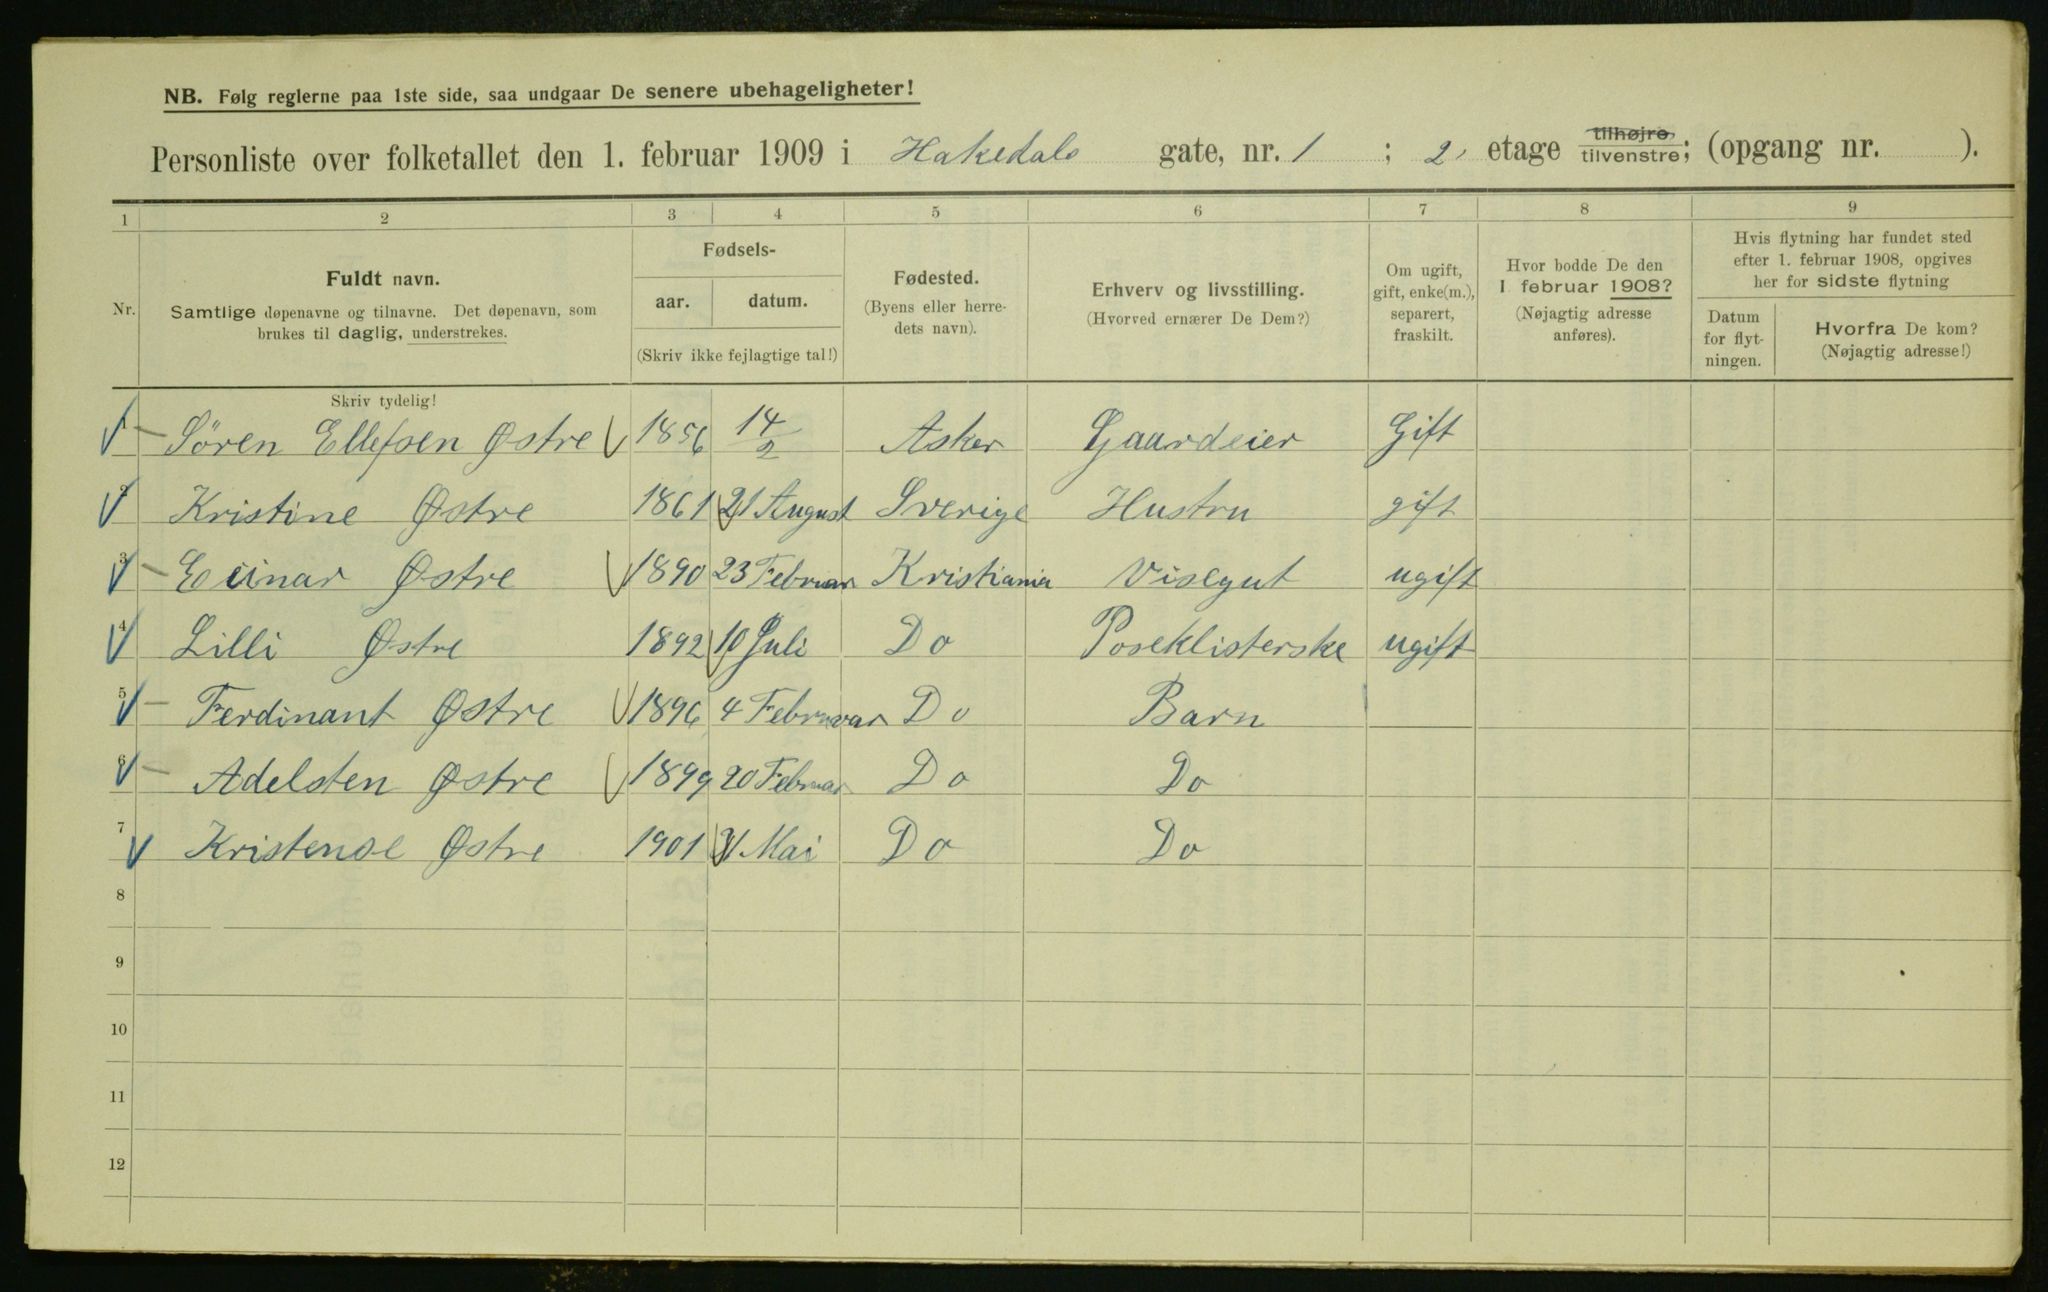 NB. Følg reglerne paa 1ste side, saa undgaar De senere ubehageligheter!
Personliste over folketallet den 1. februar 1909 i Hakedals gate, nr. 1 ; 2, etage tilhøjre tilvenstre; (opgang nr. ).
1 2 3 4 5 6 7 8 9
Nr.
Fuldt navn.
Samtlige døpenavne og tilnavne. Det døpenavn, som
brukes til daglig, understrekes.
Skriv tydelig!
Fødsels-
aar. datum.
(Skriv ikke fejlagtige tal!)
Fødested.
(Byens eller herre-
dets navn).
Erhverv og livsstilling.
(Hvorved ernærer De Dem?)
Om ugift,
gift, enke(m.),
separert,
fraskilt.
Hvor bodde De den
1 februar 1908?
(Nøjagtig adresse
anføres).
Hvis flytning har fundet sted
efter 1. februar 1908, opgives
her for sidste flytning
Datum
for flyt-
ningen.
Hvorfra De kom?
(Nøjagtig adresse!)
1 Søren Ellefsen Østre 1856 14/2 Asker Gaardeier Gift
2 Kristine Østre 1861 21 August Sverige Hustru gift
3 Einar Østre 1890 23 Februar Kristiania Visegut ugift
4 Lilli Østre 1892 10 Juli Do Poseklisterske ugift
5 Ferdinant Østre 1896 4 Februar Do Barn
6 Adelsten Østre 1899 20 Februar Do Do
7 Østre 1901 Mai Do Do
8
9
10
11
12